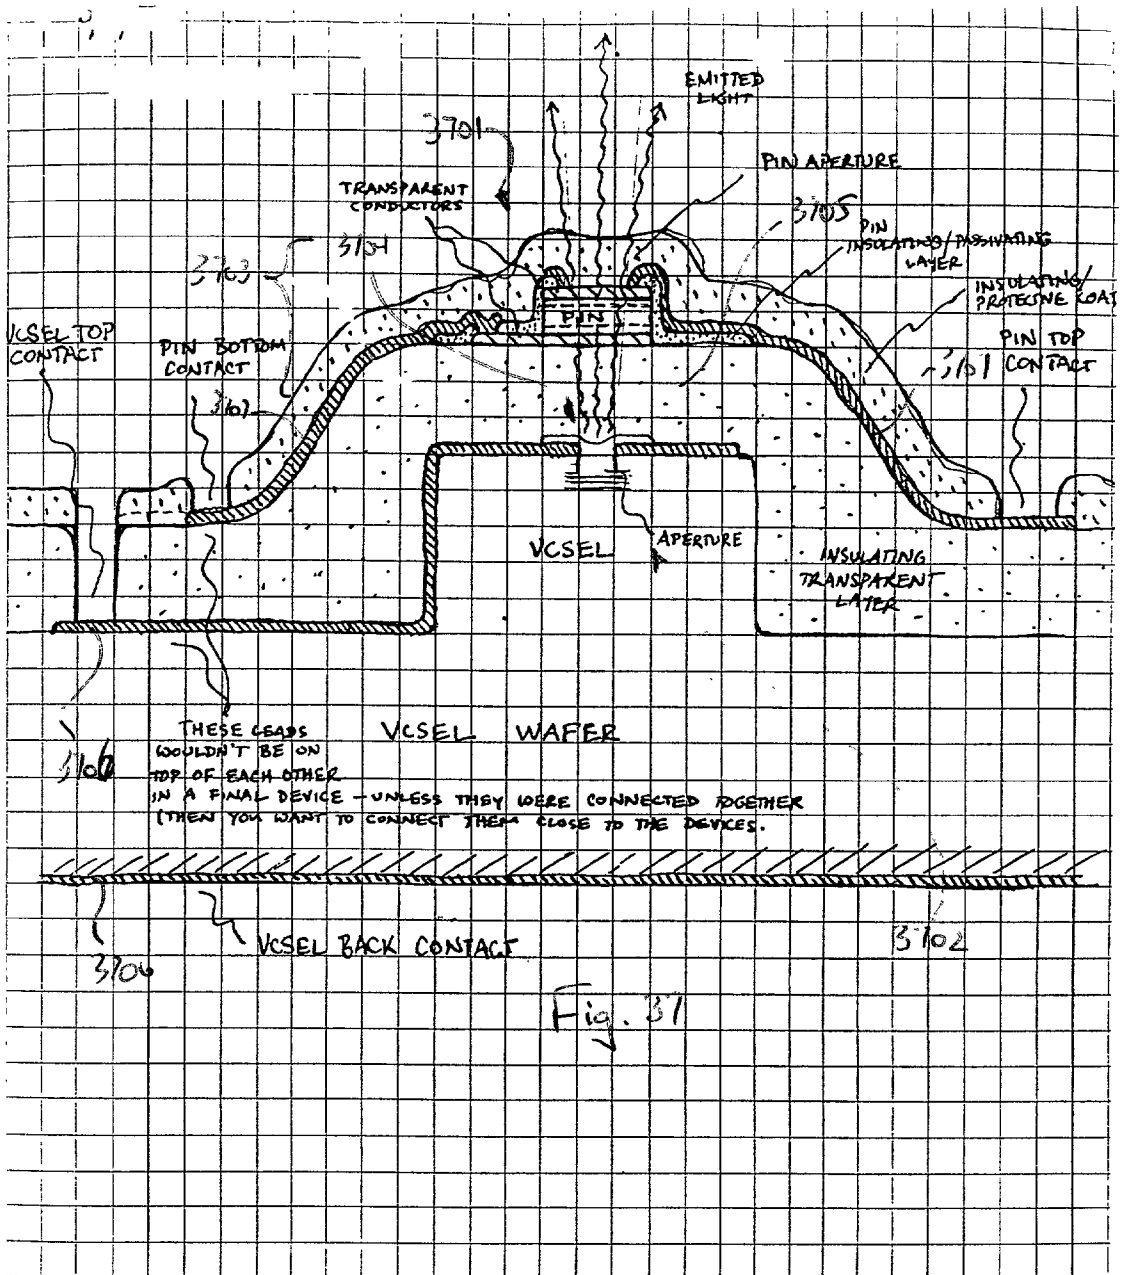 EMITTED
LIGHT
3701
PIN APERTURE
TRANSPARENT
CONDUCTORS
3705
3704
PIN
INSULATING/PASSIVATING
LAYER
3703
INSULATING/
PROTECTIVE COAT
PIN
VCSEL TOP
CONTACT
PIN BOTTOM
CONTACT
PIN TOP
CONTACT
VCSEL
APERTURE
INSULATING
TRANSPARENT
LAYER
THESE LEADS
WOULDN'T BE ON
TOP OF EACH OTHER
IN A FINAL DEVICE - UNLESS THEY WERE CONNECTED TOGETHER
(THEN YOU WANT TO CONNECT THEM CLOSE TO THE DEVICES.
VCSEL WAFER
3706
VCSEL BACK CONTACT
3702
3706
Fig. 37